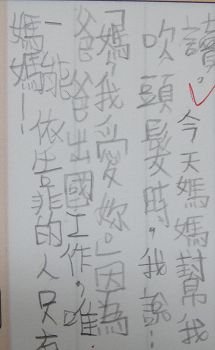 讀。今天媽媽幫我
吹頭髮時，我說：
「媽，我愛妳。」因為
爸爸出國工作，唯
一能依靠的人只有
媽媽—